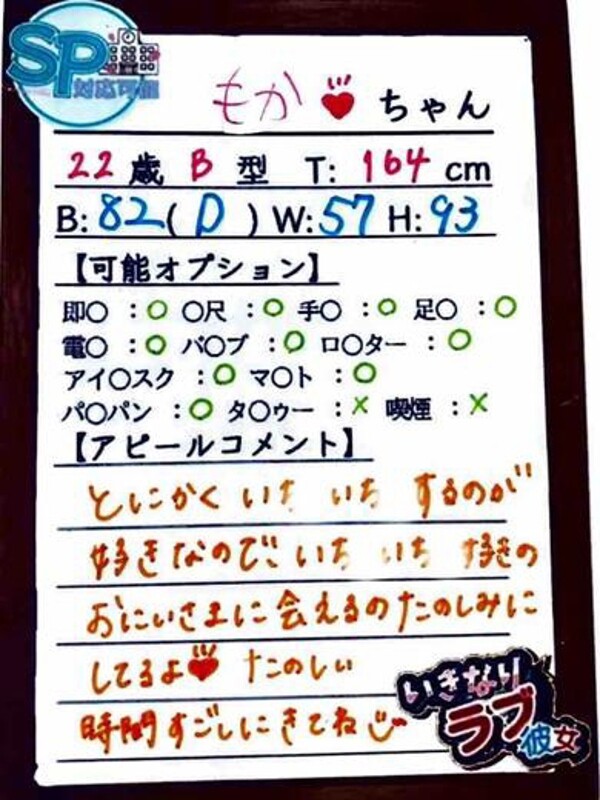 SP
対応可能
もか ちゃん
22 歳 B 型 T: 164 cm
B: 82 ( D ) W: 57 H: 93
【可能オプション】
即〇 : ○ 〇尺 : ○ 手〇 : ○ 足〇 : ○
電〇 : ○ バ〇ブ : ○ ロ〇ター : ○
アイ〇スク : ○ マ〇ト : ○
パ〇パン : ○ タ〇ゥー : × 喫煙 : ×
【アピールコメント】
とにかく いち いち するのが
好きなので いち いち 好きの
おにいさまに会えるのたのしみに
してるよ たのしい
時間すごしにきてね
いきなり
ラブ彼女